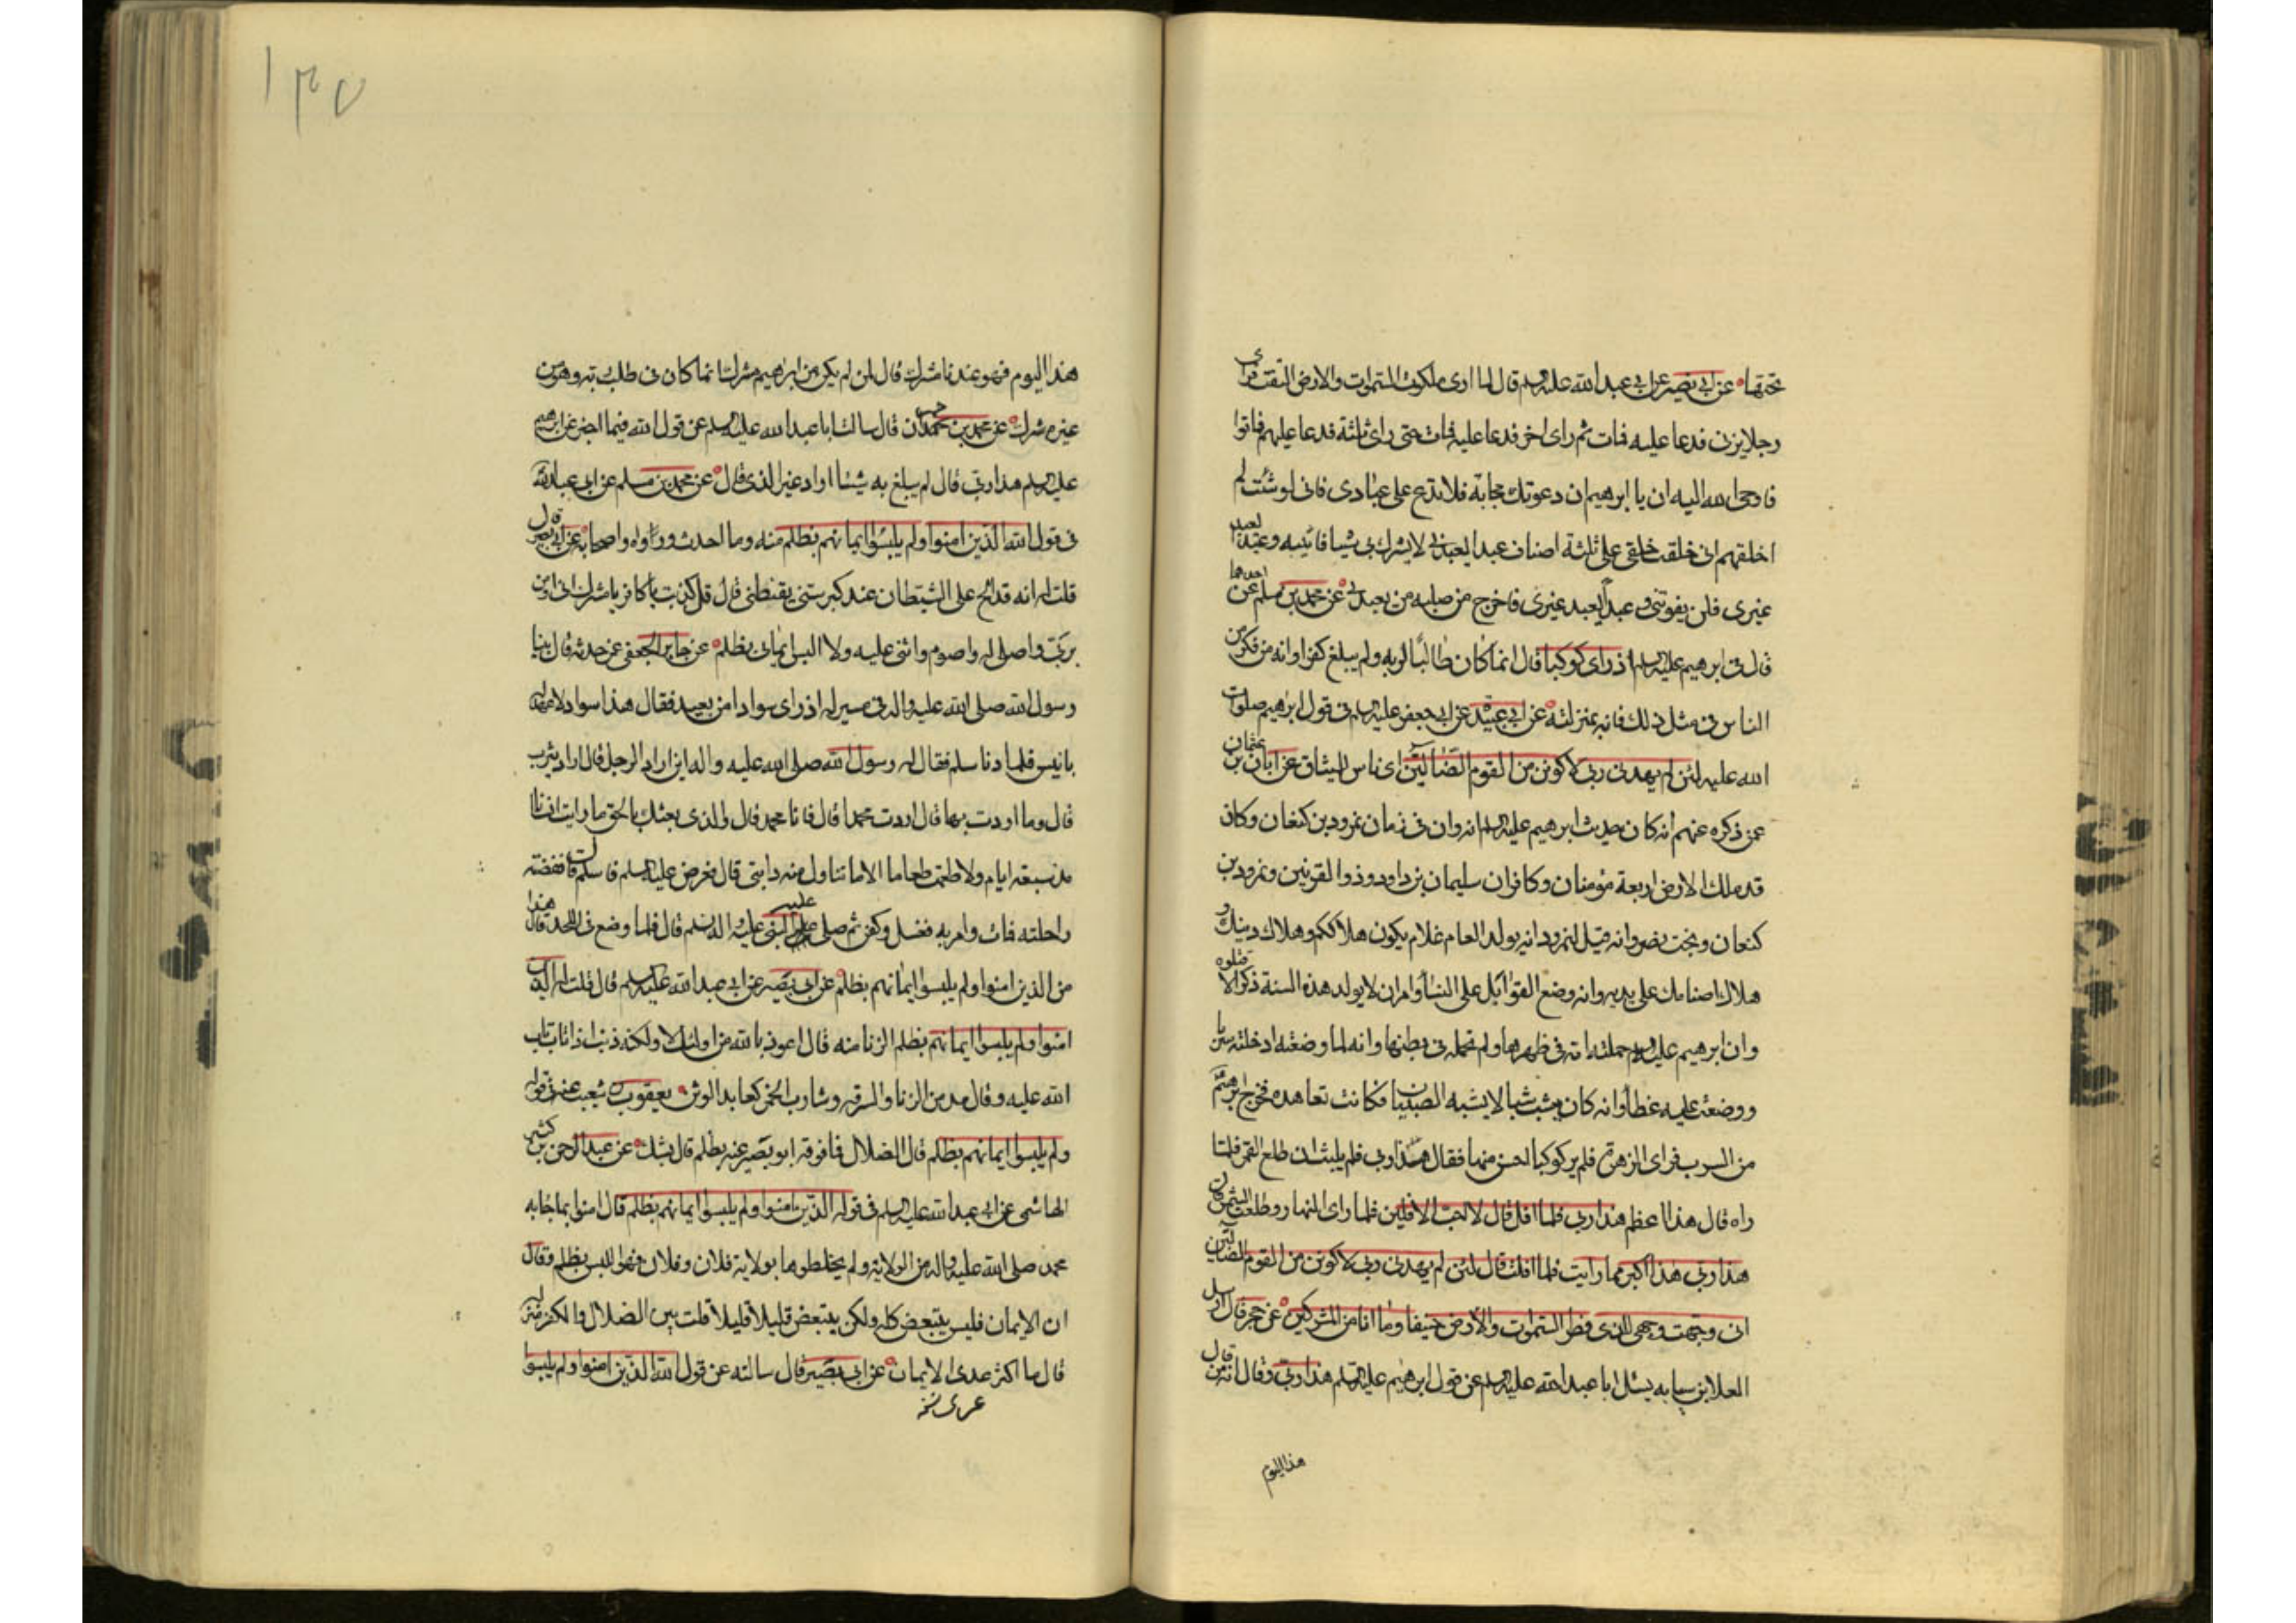 تحتها عن ابي بصير عن ابي عبد الله عليه السلم قال لما ارى ملكوت السموات والارض التفت فراى
رجلا يزنى فدعا عليه فمات ثم راى اخر فدعا عليه فمات حتى راى ثلثة فدعا عليهم فماتوا
فاوحى الله اليه ان يا ابرهيم ان دعوتك مجابة فلا تدع على عبادى فانى لو شئت لم
اخلقهم انى خلقت خلقى على ثلثة اصناف عبدا يعبدنى لا يشرك بى شيئا فاثيبه وعبدا يعبد
غيرى فلن يفوتنى وعبدا يعبد غيرى فاخرج من صلبه من يعبدنى عن محمد بن مسلم عن احدهما
قال فى ابرهيم عليه السلم اذ راى كوكبا قال انما كان طالبا لربه ولم يبلغ كفرا وانه من فكر من
الناس فى مثل ذلك فانه بمنزلته عن ابى عبيدة عن ابى جعفر عليه السلم فى قول ابرهيم صلوات
الله عليه لئن لم يهدنى ربى لاكونن من القوم الضالين اى ناس للميثاق عن ابان بن عثمان
عمن ذكره عنهم انه كان من حديث ابرهيم عليه السلم انه ولد فى زمان نمرود بن كنعان وكان
قد ملك الارض اربعة مؤمنان وكافران سليمان بن داود وذوا القرنين ونمرود بن
كنعان وبخت نصر وانه قيل لنمرود انه يولد العام غلام يكون هلاككم وهلاك دينك و
هلاك اصنامك على يديه وانه وضع القوابل على النساء وامر ان لا يولد هذه السنة ذكر الا قتلوه
وان ابرهيم عليه السلم حملته امه فى ظهرها ولم تحمله فى بطنها وانه لما وضعته ادخلته سربا
ووضعت عليه غطاء وانه كان يشب شبا لا يشبه الصبيان فكانت تعاهده فخرج ابرهيم
من السرب فراى الزهرة فلم ير كوكبا احسن منها فقال هذا ربى فلم يلبث ان طلع القمر فلما
راه قال هذا اعظم هذا ربى فلما افل قال لا احب الافلين فلما راى النهار وطلعت الشمس قال
هذا ربى هذا اكبر مما رايت فلما افلت قال لئن لم يهدنى ربى لاكونن من القوم الضالين
انى وجهت وجهى للذى فطر السموات والارض حنيفا وما انا من المشركين عن حجر قال ارسل
العلا بن سيابه يسئل ابا عبد الله عليه السلم عن قول ابرهيم عليه السلم هذا ربى وقال انه من قال
هذا اليوم
١٣٥
هذا اليوم فهو عندنا مشرك قال لمن لم يكن من ابراهيم شرك انما كان فى طلب ربه وهو من
غيره شرك عن محمد بن حمران قال سالت ابا عبد الله عليه السلم عن قول الله فيما اخبر عن ابرهيم
عليه السلم هذا ربى قال لم يبلغ به شيئا اراد غير الذى قال عن محمد بن مسلم عن ابى عبد الله
فى قول الله الذين امنوا ولم يلبسوا ايمانهم بظلم منه وما احدث زرارة واصحابه عن ابى بصير قال
قلت له انه قد الح على الشيطان عند كبر سنى يقنطنى قال قل كذبت يا كافر يا مشرك انى اومن
بربى واصلى له واصوم واثنى عليه ولا البس ايمانى بظلم عن جابر الجعفى عن حدثه قال بينا
رسول الله صلى الله عليه واله فى مسير له اذ راى سوادا من بعيد فقال هذا سواد لا عهد له
بانيس فلما دنا سلم فقال له رسول الله صلى الله عليه واله اين اراد الرجل قال اراد يثرب
قال وما اردت بها قال اردت محمدا قال فانا محمد قال والذى بعثك بالحق ما رايت انسانا
مذ سبعة ايام ولا طعمت طعاما الا ما تناول منه دابتى قال فعرض عليه السلم فاسلم قال فقضته
راحلته فمات وامر به فغسل وكفن ثم صلى عليه النبى عليه واله السلم قال فلما وضع فى اللحد قال هذا
من الذين امنوا ولم يلبسوا ايمانهم بظلم عن ابى بصير عن ابى عبد الله عليه السلم قال قلت له الذين
امنوا ولم يلبسوا ايمانهم بظلم الزنا منه قال اعوذ بالله من اولئك لا ولكنه ذنب اذا تاب تاب
الله عليه وقال مدمن الزنا والسرقه وشارب الخمر كعابد الوثن يعقوب بن شعيب عنه فى قوله
ولم يلبسوا ايمانهم بظلم قال الضلال فما فوقه ابو بصير عنه بظلم قال بشك عن عبد الرحمن بن كثير
الهاشمى عن ابى عبد الله عليه السلم فى قوله الذين امنوا ولم يلبسوا ايمانهم بظلم قال امنوا بما جاء به
محمد صلى الله عليه واله من الولاية ولم يخلطوها بولاية فلان وفلان فهو اللبس بظلم وقال
ان الايمان فليس يتبعض كله ولكن يتبعض قليلا قليلا قلت بين الضلال والكفر منزلة
قال ما اكثر عدى الايمان عن ابى بصير قال سالته عن قول الله الذين امنوا ولم يلبسوا
عرى نخه